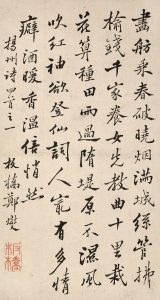 畫舫乘春破曉烟滿城絲管拂
榆錢千家養女先教曲十里栽
花算種田雨過隋堤原不濕風
吹紅袖欲登仙詞人有多情
癖酒暖香温倍悄然
揚州詩四首之一
板橋鄭燮
板橋